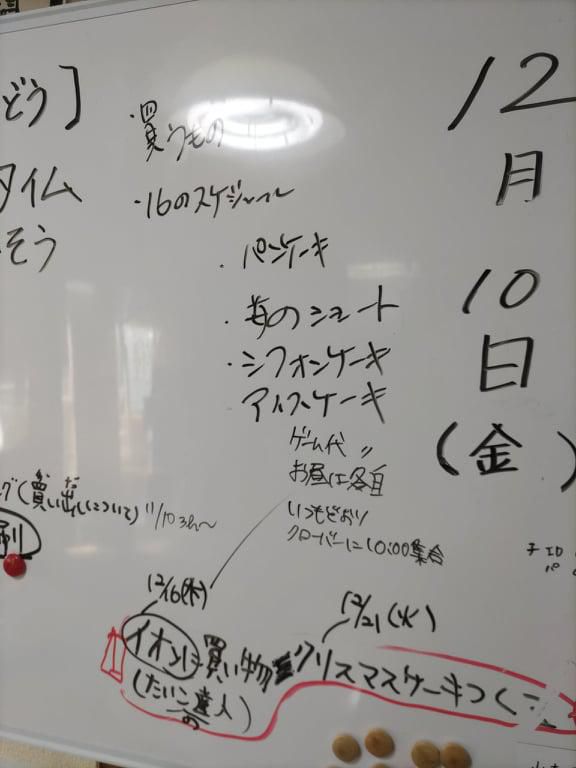 どう]
タイム
そう
・買うもの
・16のスケジュール
・パンケーキ
・苺のショート
・シフォンケーキ
アイスケーキ
ゲーム代 〃
お昼は各自
いつもどおり
クローバーに10:00集合
グ(買い出しについて)
12/16(木)
イオンに買い物
(たいこの達人)
12/21(火)
クリスマスケーキつくり
12
月
10
日
(金)